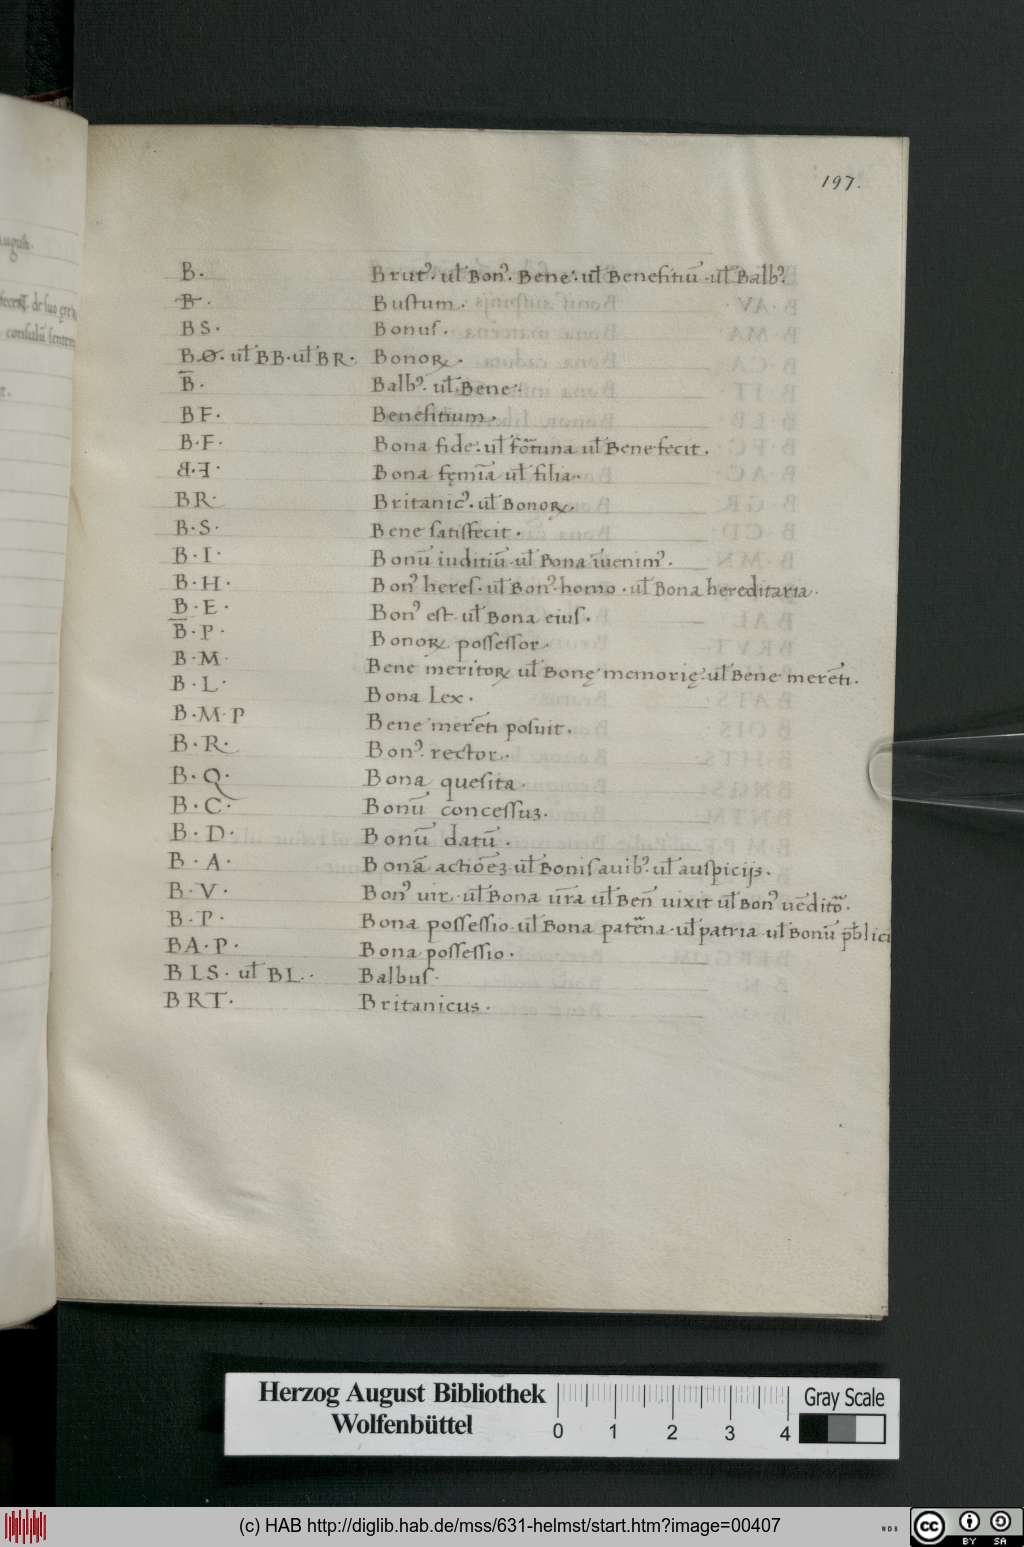 197.
B. Brutꝰ. ul̄ Bonꝰ. Bene. ul̄ Benefitiū. ul̄ Balbꝰ.
B. Bustum.
BS. Bonus.
BO. ul̄ BB. ul̄ BR. Bonoꝝ.
B̄. Balbꝰ. ul̄ Bene.
BF. Benefitium.
B.F. Bona fide. ul̄ fortuna ul̄ Benefecit.
ᗺ.ꟻ. Bona fęmīa ul̄ filia.
BR. Britanicꝰ. ul̄ Bonoꝝ.
B.S. Bene satisfecit.
B.I. Bonū iuditiū. ul̄ Bona
B.H. Bonꝰ heres. ul̄ Bonꝰ. homo. ul̄ Bona hereditaria.
B.E. Bonꝰ est. ul̄ Bona eius.
B̄.P. Bonoꝝ possessor.
B.M. Bene meritoꝝ ul̄ Bonę memorię. ul̄ Bene merēti.
B.L. Bona Lex.
B.M.P Bene merēti posuit.
B.R. Bonꝰ. rector.
B.Q. Bona quesita.
B.C. Bonū concessuꝫ.
B.D. Bonū datū.
B.A. Bonā actiōeꝫ. ul̄ Bonis auibꝰ. ul̄ auspicijs.
B.V. Bonꝰ uir. ul̄ Bona ur̄a ul̄ Ben̄ uixit ul̄ Bonꝰ uēditor.
B.P. Bona possessio. ul̄ Bona pat̄na. ul̄ patria. ul̄ Bonū
BA.P. Bona possessio.
BLS. ul̄ BL. Balbus.
BRT. Britanicus.
Herzog August Bibliothek
Wolfenbüttel
0 1 2 3 4
Gray Scale
(c) HAB http://diglib.hab.de/mss/631-helmst/start.htm?image=00407
WDB
cc BY SA